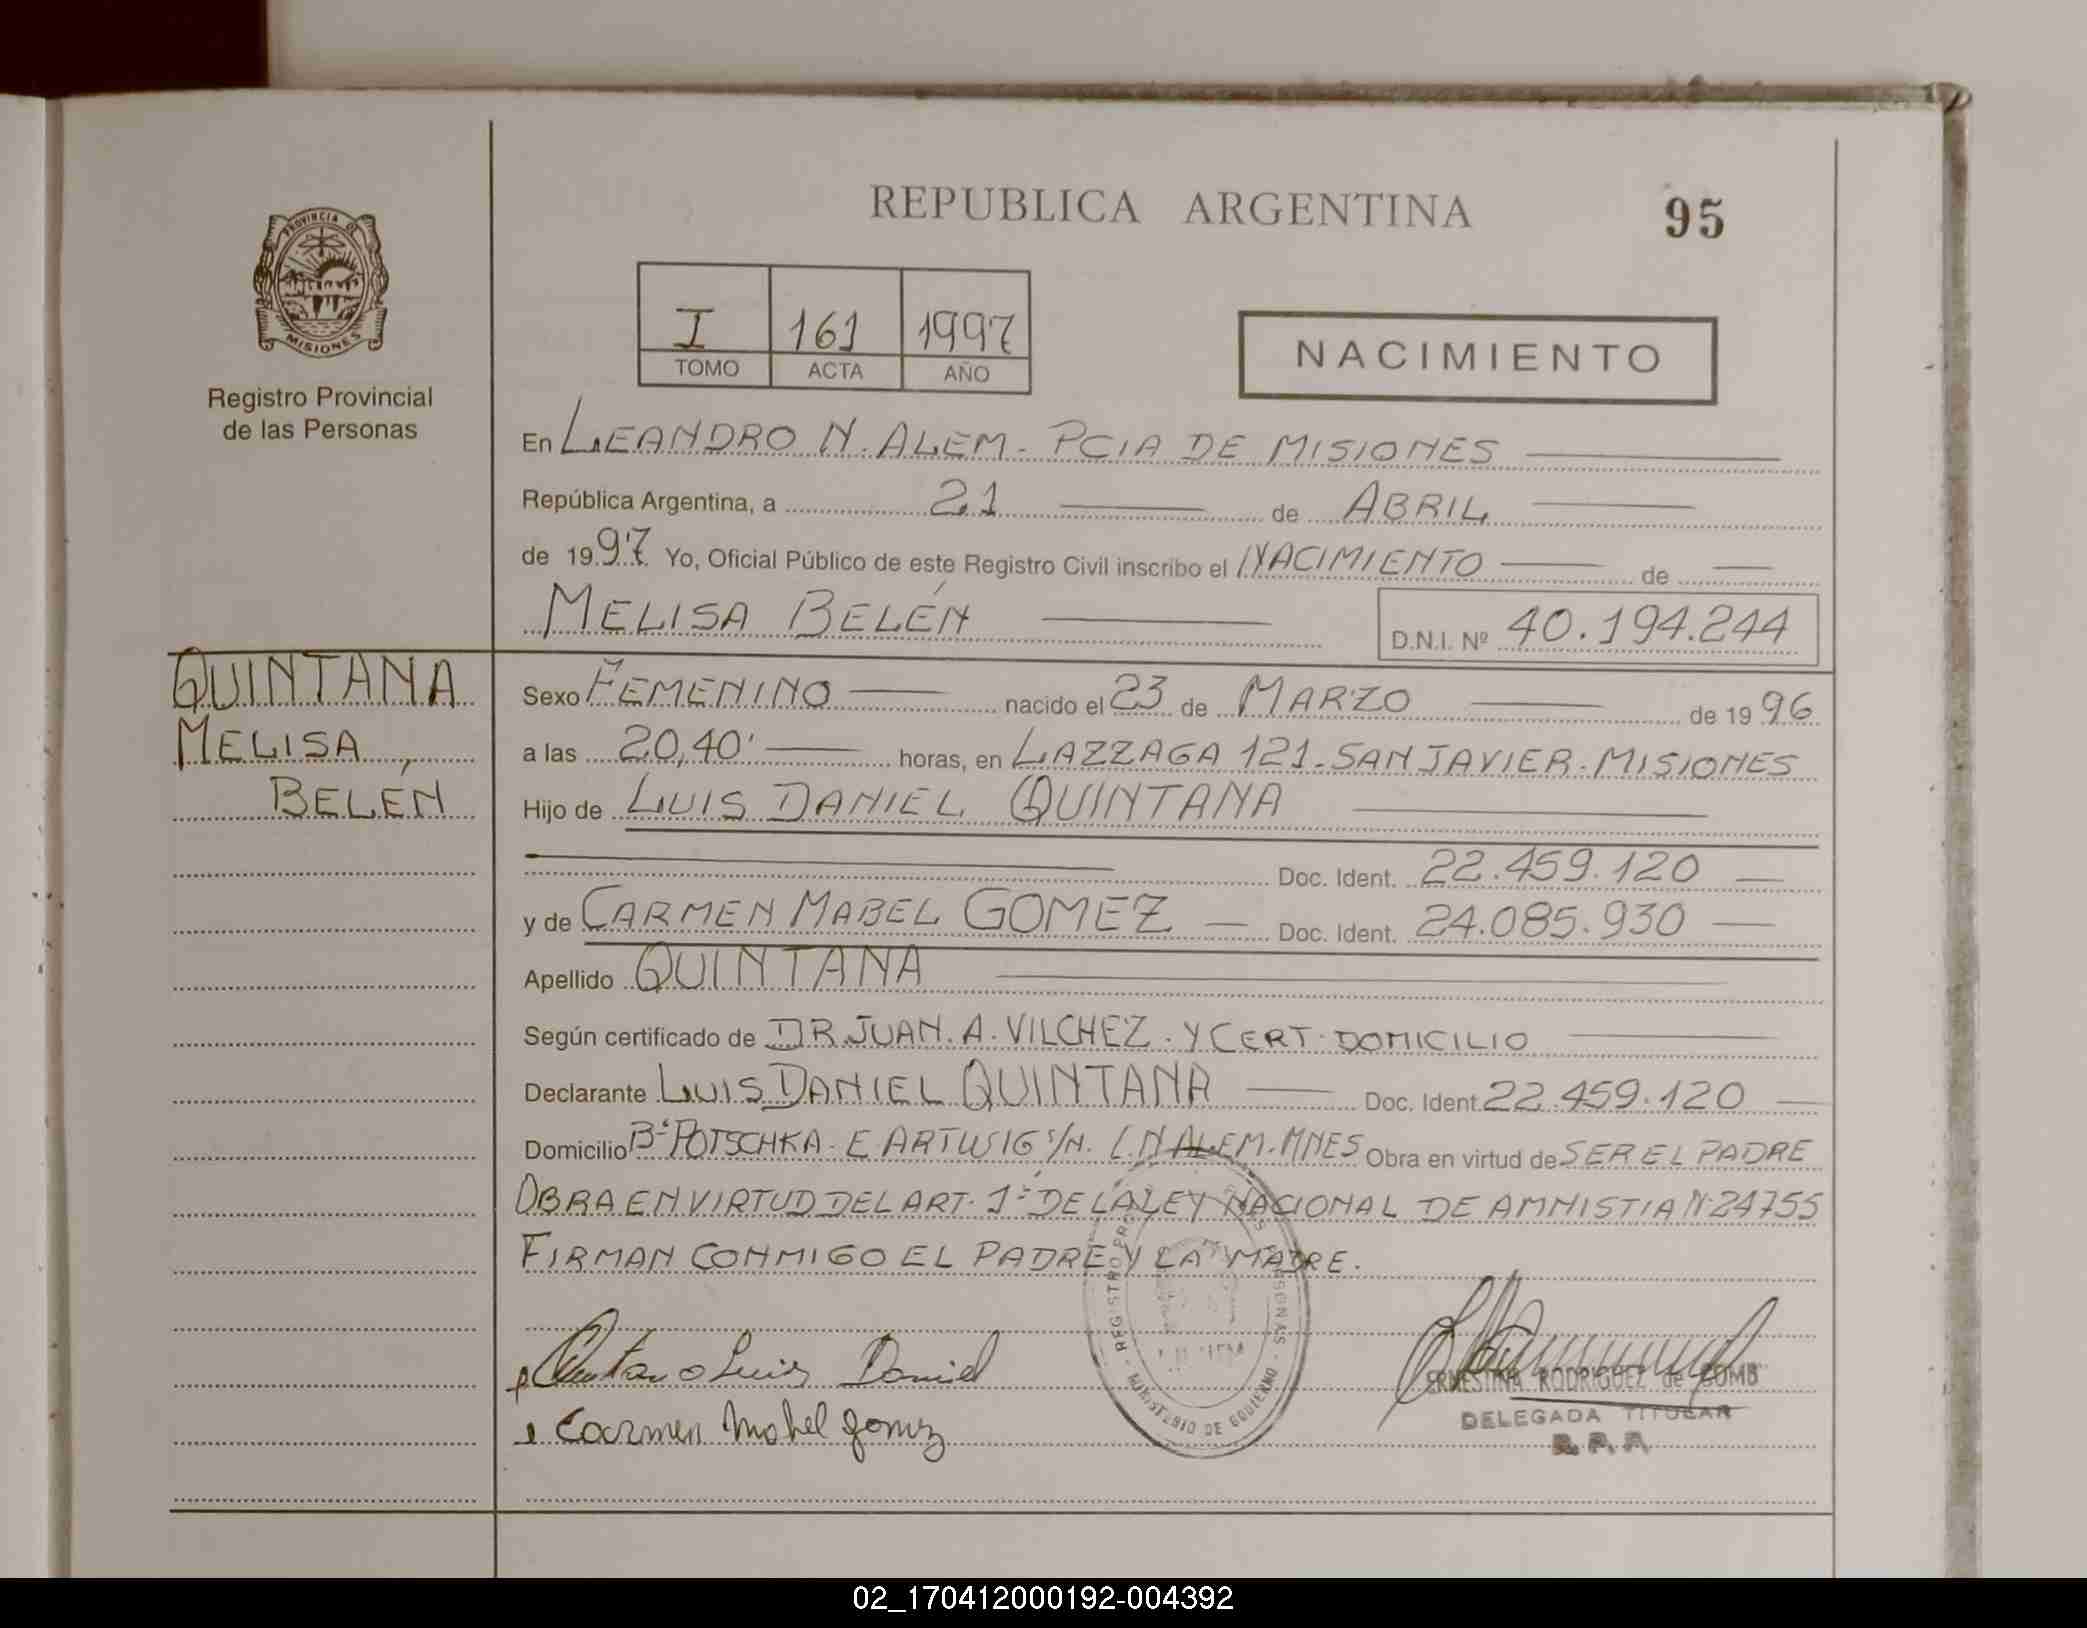 REPUBLICA ARGENTINA
95
PROVINCIA DE
MISIONES
Registro Provincial
de las Personas
I 161 1997
TOMO ACTA AÑO
NACIMIENTO
En LEANDRO N. ALEM - PCIA DE MISIONES
República Argentina, a 21 de ABRIL
de 1997 Yo, Oficial Público de este Registro Civil inscribo el NACIMIENTO de
MELISA BELÉN
D.N.I. Nº 40.194.244
QUINTANA
MELISA
BELÉN
Sexo FEMENINO nacido el 23 de MARZO de 1996
a las 20,40' horas, en LAZZAGA 121 - SAN JAVIER - MISIONES
Hijo de LUIS DANIEL QUINTANA
Doc. Ident. 22.459.120
y de CARMEN MABEL GOMEZ Doc. Ident. 24.085.930
Apellido QUINTANA
Según certificado de DR. JUAN. A. VILCHEZ. Y CERT. DOMICILIO
Declarante LUIS DANIEL QUINTANA Doc. Ident. 22.459.120
Domicilio Bº POTSCHKA - E. ARTWIG S/N. L.N ALEM. MNES Obra en virtud de SER EL PADRE
OBRA EN VIRTUD DEL ART. 1º DE LA LEY NACIONAL DE AMNISTIA Nº 24755
FIRMAN CONMIGO EL PADRE Y LA MADRE.
Quintana Luis Daniel
Carmen Mabel Gomez
MINISTERIO DE GOBIERNO
ERNESTINA RODRIGUEZ de GOMB
DELEGADA TITULAR
R.P.P.
02_170412000192-004392